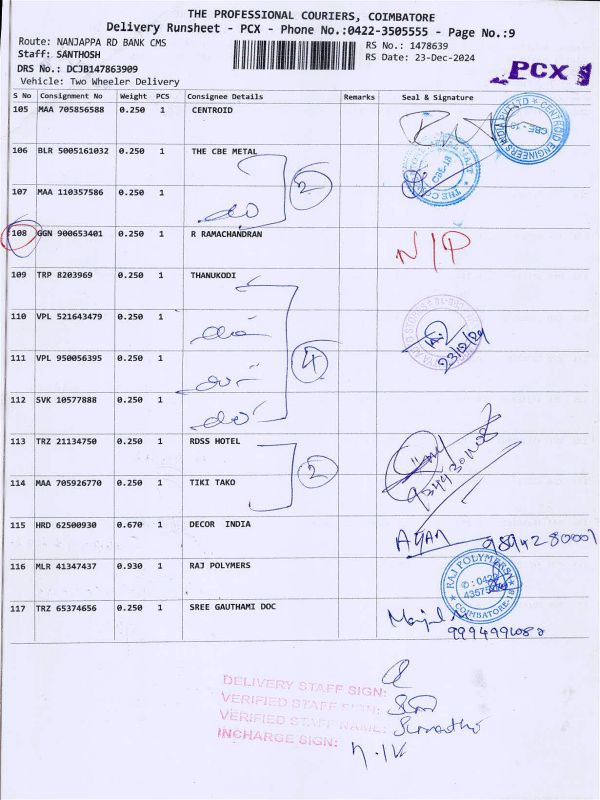 THE PROFESSIONAL COURIERS, COIMBATORE
Delivery Runsheet - PCX - Phone No.:0422-3505555 - Page No.:9
Route: NANJAPPA RD BANK CMS
Staff: SANTHOSH
DRS No.: DCJB147863909
Vehicle: Two Wheeler Delivery
RS No.: 1478639
RS Date: 23-Dec-2024
PCX
S No Consignment No Weight PCS Consignee Details Remarks Seal & Signature
105 MAA 705856588 0.250 1 CENTROID
106 BLR 5005161032 0.250 1 THE CBE METAL
2
107 MAA 110357586 0.250 1 do
108 GGN 900653401 0.250 1 R RAMACHANDRAN N/P
109 TRP 8203969 0.250 1 THANUKODI
110 VPL 521643479 0.250 1 do
23/12/24
111 VPL 950056395 0.250 1 do
4
112 SVK 10577888 0.250 1 do
113 TRZ 21134750 0.250 1 RDSS HOTEL
2
114 MAA 705926770 0.250 1 TIKI TAKO
115 HRD 62500930 0.670 1 DECOR INDIA 9894280001
116 MLR 41347437 0.930 1 RAJ POLYMERS
RAJ POLYMERS
COIMBATORE-18
117 TRZ 65374656 0.250 1 SREE GAUTHAMI DOC
DELIVERY STAFF SIGN:
VERIFIED STAFF SIGN:
VERIFIED STAFF NAME:
INCHARGE SIGN: